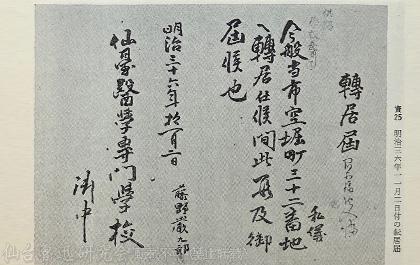 轉居届
私儀
今般当市空堀町三十二番地
ヘ轉居仕候間此段及御
届候也
明治三十六年拾一月二日
藤野嚴九郎
仙臺醫學専門學校
御中
資25 明治三六年一一月二日付の転居届